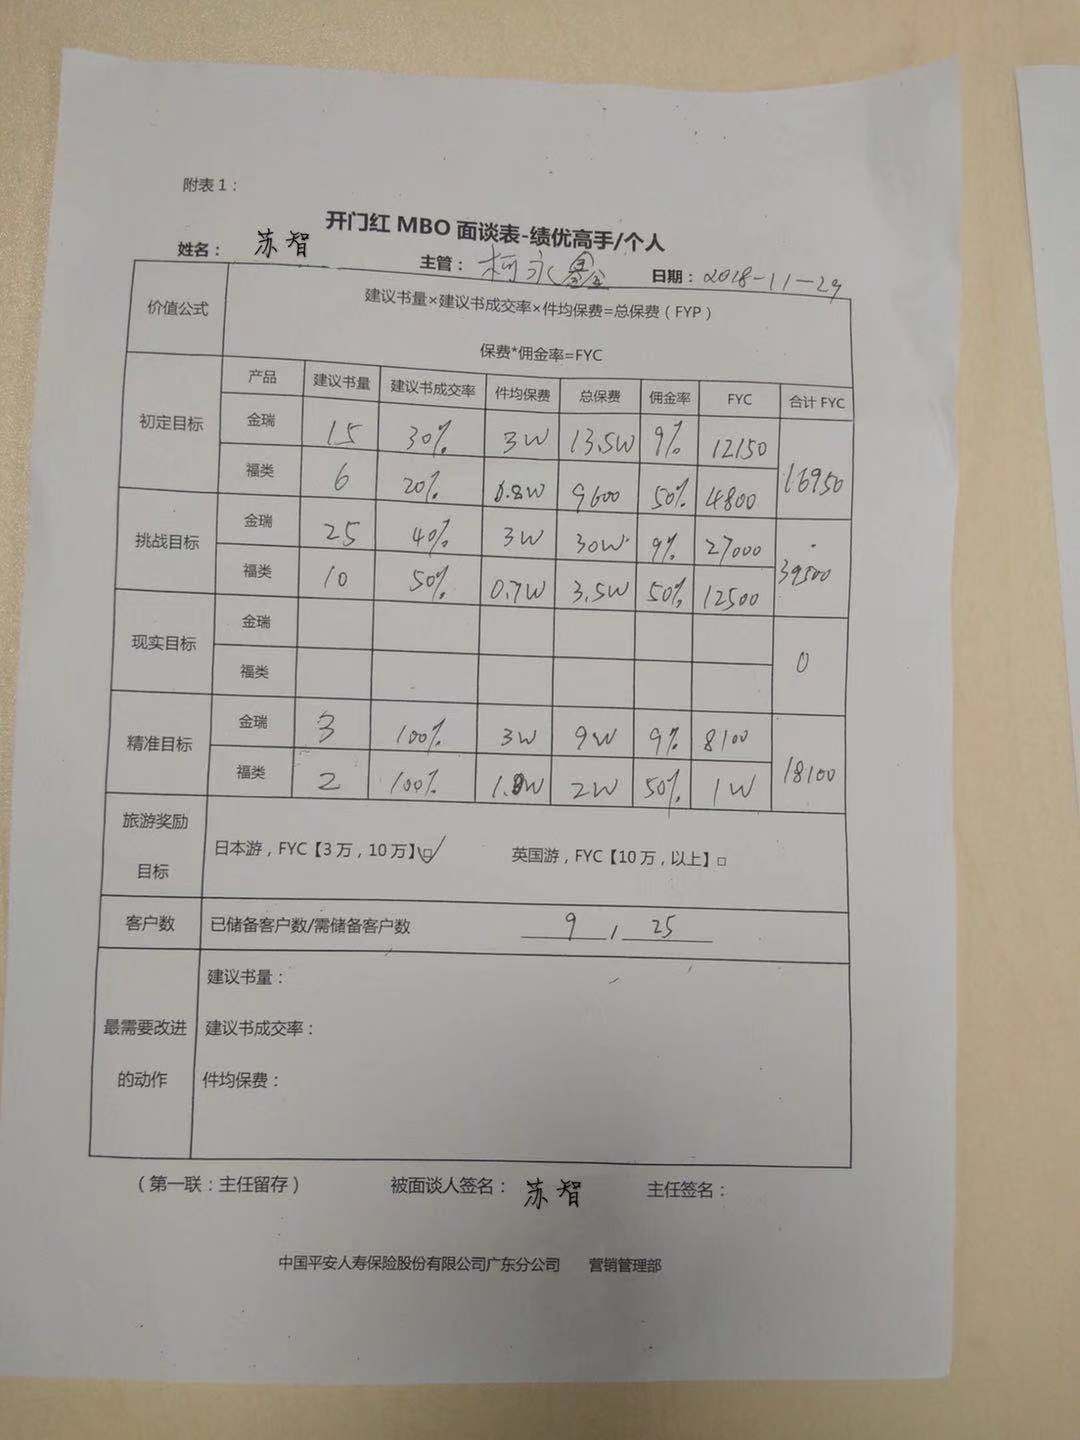 附表1：
开门红 MBO 面谈表-绩优高手/个人
姓名： 苏智 主管： 柯永 日期：2018-11-29
价值公式
建议书量×建议书成交率×件均保费=总保费（FYP）
保费*佣金率=FYC
初定目标 产品 建议书量 建议书成交率 件均保费 总保费 佣金率 FYC 合计 FYC
金瑞 15 30% 3W 13.5W 9% 12150 16950
福类 6 20% 0.8W 9600 50% 4800
挑战目标 金瑞 25 40% 3W 30W 9% 27000 39500
福类 10 50% 0.7W 3.5W 50% 12500
现实目标 金瑞 0
福类
精准目标 金瑞 3 100% 3W 9W 9% 8100 18100
福类 2 100% 2W 50% 1W
旅游奖励目标
日本游，FYC【3万，10万】☑ 英国游，FYC【10万，以上】□
客户数 已储备客户数/需储备客户数 9 / 25
最需要改进的动作
建议书量：
建议书成交率：
件均保费：
（第一联：主任留存） 被面谈人签名： 苏智 主任签名：
中国平安人寿保险股份有限公司广东分公司 营销管理部